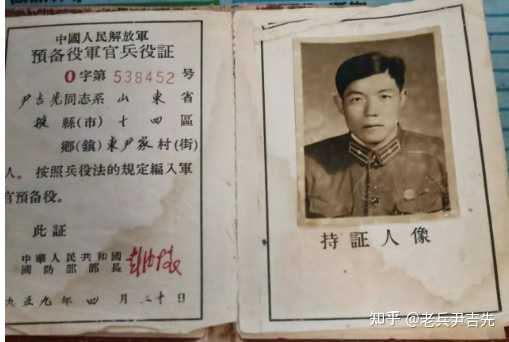 中國人民解放軍
預备役軍官兵役証
O字第 538452 号
尹吉先同志系 山東省
掖縣(市)十四區
鄉(鎮)東尹家村(街)
人。按照兵役法的規定編入軍
官預备役。
此証
中華人民共和國
國防部部長
五九年四月 十日
持証人像
知乎 @老兵尹吉先